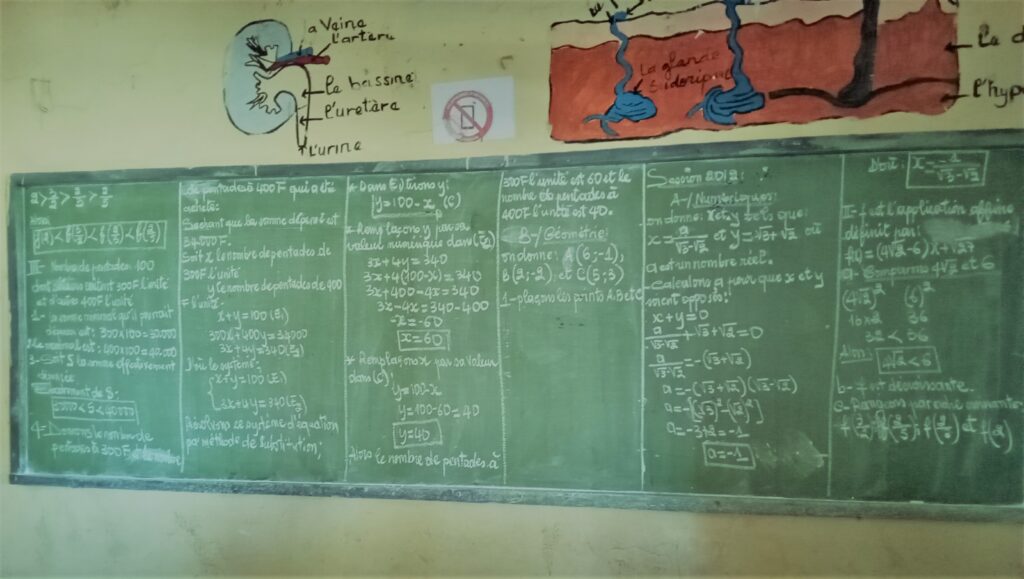 a Veine
l'artère
le bassine
l'uretère
l'urine
La glande
Sudoripare
le d
l'hype
2 > 3/2 > 2/3 > 2/5
Alors
III- Nombre de pentades: 100
300F l'unité
et d'autres 400F l'unité
1- la somme minimale qu'il pourrait
dépenser est: 300x100 = 30.000
400x100 = 40.000
3- Soit S la somme effectivement
dépensée
Encadrement de S:
30000 < S < 40000
4- Donnons le nombre de
pentades à 300F et le nombre
de pentades à 400F qui a été
acheté:
Sachant que la somme dépensé est
34.000F.
Soit x le nombre de pentades de
300F l'unité
y le nombre de pentades de 400
F l'unité.
x+y = 100 (E1)
300x+400y = 34000
3x+4y = 340 (E2)
D'où le système:
{ x+y = 100 (E1)
3x+4y = 340 (E2)
Résolvons ce système d'équation
par méthode de substitution,
* Dans E1 tirons y:
y = 100-x (C)
* Remplaçons y par sa
valeur numérique dans (E2)
3x+4y = 340
3x+4(100-x) = 340
3x+400-4x = 340
3x-4x = 340-400
-x = -60
x = 60
* Remplaçons x par sa valeur
dans (C)
y = 100-x
y = 100-60 = 40
y = 40
Alors le nombre de pentades à
300F l'unité est 60 et le
nombre de pentades à
400F l'unité est 40.
B-/ Géométrie
on donne: A(6;-1),
B(2;-2) et C(5;3)
1-plaçons les points A.B et C
Session 2012:
A-/ Numériques
on donne: x et y tels que:
x = a/(√3-√2) et y = √3+√2 où
a est un nombre réel.
- Calculons a pour que x et y
soient opposés:
x+y = 0
a/(√3-√2) + √3+√2 = 0
a/(√3-√2) = -(√3+√2)
a = -(√3+√2)(√3-√2)
a = -[(√3)²-(√2)²]
a = -3+2 = -1
a = -1
Doit: x = -1/(√3-√2)
II- f est l'application affine
définit par:
f(x) = (4√2-6)x+√27
a- Comparons 4√2 et 6
(4√2)² (6)²
16x2 36
32 < 36
Alors: 4√2 < 6
b- f est décroissante.
c- Rangeons par ordre croissante